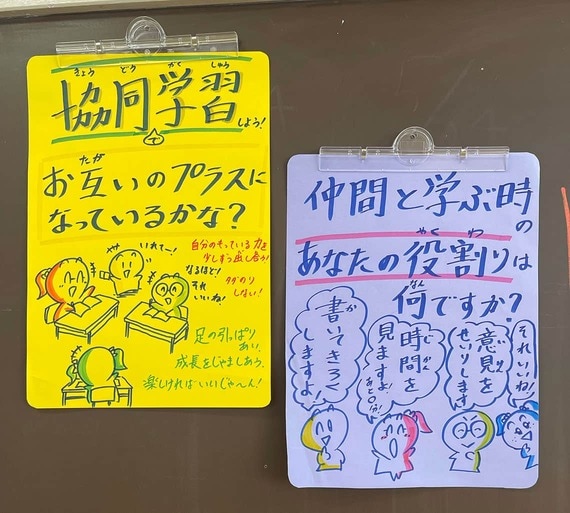 きょう どう がく しゅう
協同学習
で
しよう!
たが
お互いのプラスに
なっているかな?
いれてー!
自分のもっている力を
少しずつ出し合おう!
なるほど!
それ
いいね!
タダのり
しない!
足の引っぱり
あい、
成長をじゃましあう、
楽しければいいじゃ〜ん!
仲間と学ぶ時
の
やく わ
あなたの役割りは
なん
何ですか?
書いてきろく
しますよ!
じ かん
時間を
見ますよ!
あと○分!
い けん
意見を
せいりします
それいいね!